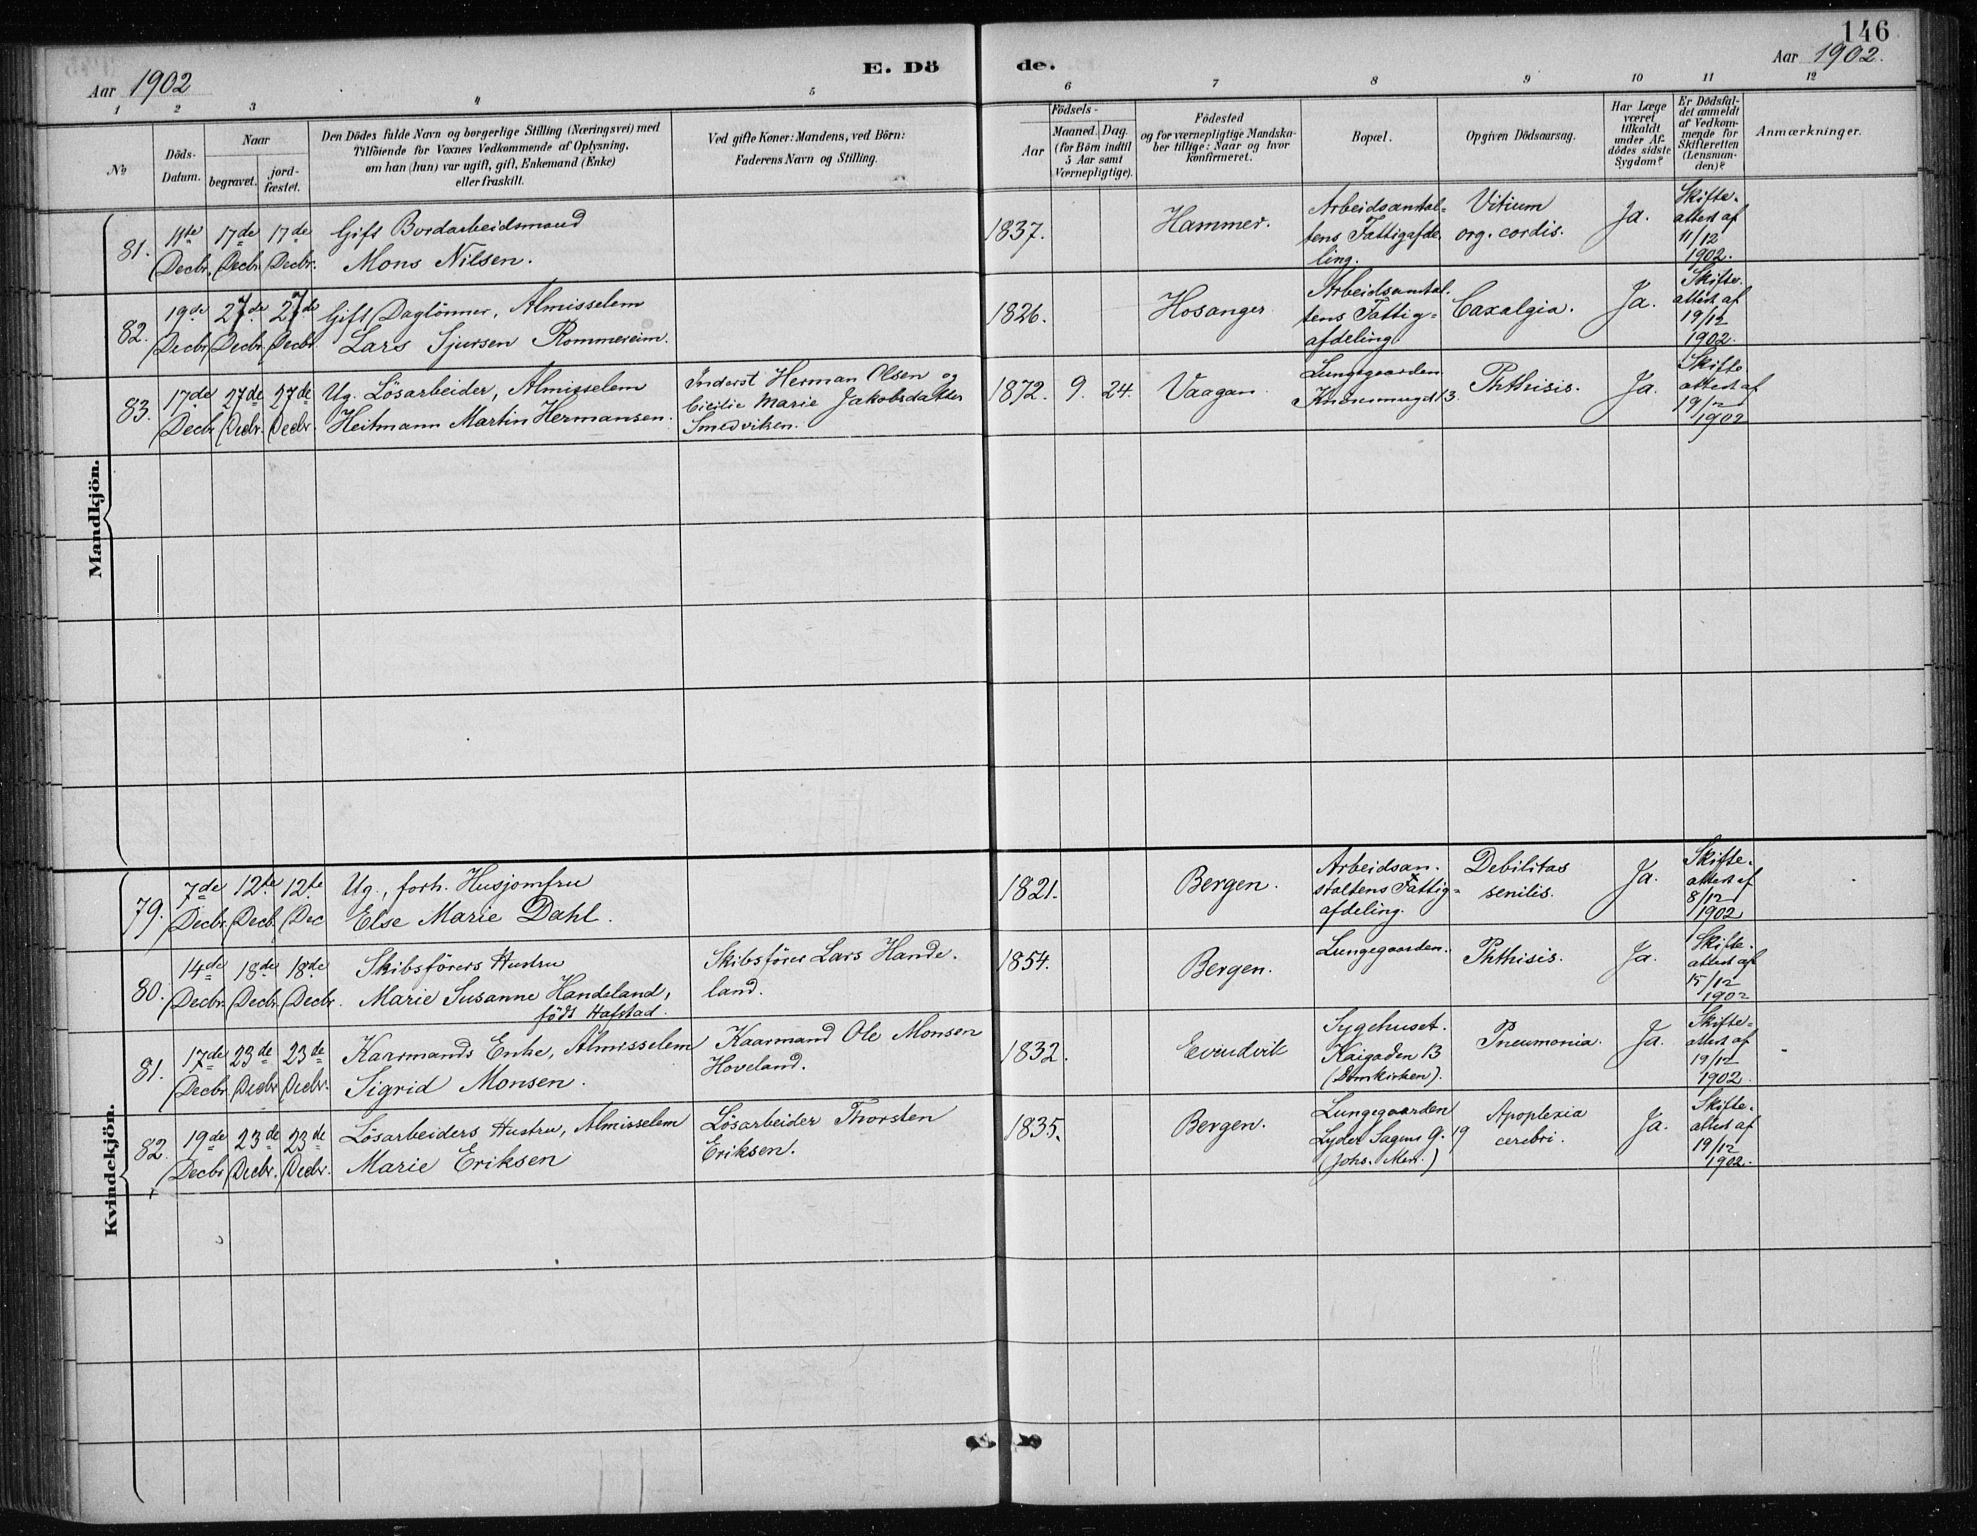 146
Aar 1902
E. Dö
de.
Aar 1902.
1 2 3 4 5 6 7 8 9 10 11 12
№
Döds-
Datum.
Naar
begravet.
jord-
fæstet.
Den Dödes fulde Navn og borgerlige Stilling (Næringsvei) med
Tilföiende for Voxnes Vedkommende af Oplysning,
om han (hun) var ugift, gift, Enkemand (Enke)
eller fraskilt.
Ved gifte Koner: Mandens, ved Börn:
Faderens Navn og Stilling.
Födsels-
Aar
Maaned. Dag.
(for Börn indtil
5 Aar samt
Værnepligtige).
Födested
og for værnepligtige Mandska-
ber tillige: Naar og hvor
konfirmeret.
Bopæl.
Opgiven Dödsaarsag.
Har Læge
været
tilkaldt
under Af-
dödes sidste
Sygdom?
Er Dödsfal-
det anmeldt
af Vedkom-
mende for
Skifteretten
(Lensman-
den)?
Anmærkninger.
Mandkjön.
81. 11te Decbr. 17de Decbr. 17de Decbr.
Gift Bordarbeidsmand
Mons Nilsen.
1837.
Hammer.
Arbeidsanstal-
tens Fattigafde-
ling.
Vitium
org. cordis.
Ja.
Skifte-
attest af
11/12
1902.
82. 19de Decbr. 27de Decbr. 27de Decbr.
Gift Daglönner, Almisselem
Lars Sjursen Rommereim.
1826.
Hosanger
Arbeidsanstal-
tens Fattig-
afdeling
Coxalgia.
Ja.
Skifte-
attest af
19/12
1902.
83. 17de Decbr. 27de Decbr. 27de Decbr.
Ug. Lösarbeider, Almisselem
Heitmann Martin Hermansen.
Inderst Herman Olsen og
Cicilie Marie Jakobsdatter
Smedviken.
1872. 9. 24.
Vaagan.
Lungegaarden
13.
Phthisis.
Ja.
Skifte
attest af
19/12
1902
Kvindekjön.
79. 7de Decbr. 12te Decb. 12te Dec
Ug., forh. Husjomfru
Else Marie Dahl.
1821.
Bergen.
Arbeidsan-
staltens Fattig-
afdeling.
Debilitas
senilis.
Ja.
Skifte-
attest af
8/12
1902
80. 14de Decbr. 18de Decbr. 18de Decbr.
Skibsförers Hustru
Marie Susanne Handeland,
födt Hafstad.
Skibsförer Lars Hande-
land.
1854.
Bergen.
Lungegaarden.
Phthisis.
Ja.
Skifte-
attest af
15/12
1902
81. 17de Decbr. 23de Decbr. 23de Decbr.
Kaarmands Enke, Almisselem
Sigrid Monsen.
Kaarmand Ole Monsen
Hoveland.
1832.
Evindvik
Sygehuset.
Kaigaden 13
(Domkirken).
Pneumonia.
Ja.
Skifte-
attest af
19/12
1902.
82. 19de Decbr. 23de Decbr. 23de Decbr.
Lösarbeiders Hustru, Almisselem
Marie Eriksen
Lösarbeider Thorsten
Eriksen.
1835.
Bergen.
Lungegaarden
Lyder Sagens G. 19
(Johs. Men.)
Apoplexia
cerebri.
Ja.
Skifte-
attest af
19/12
1902.